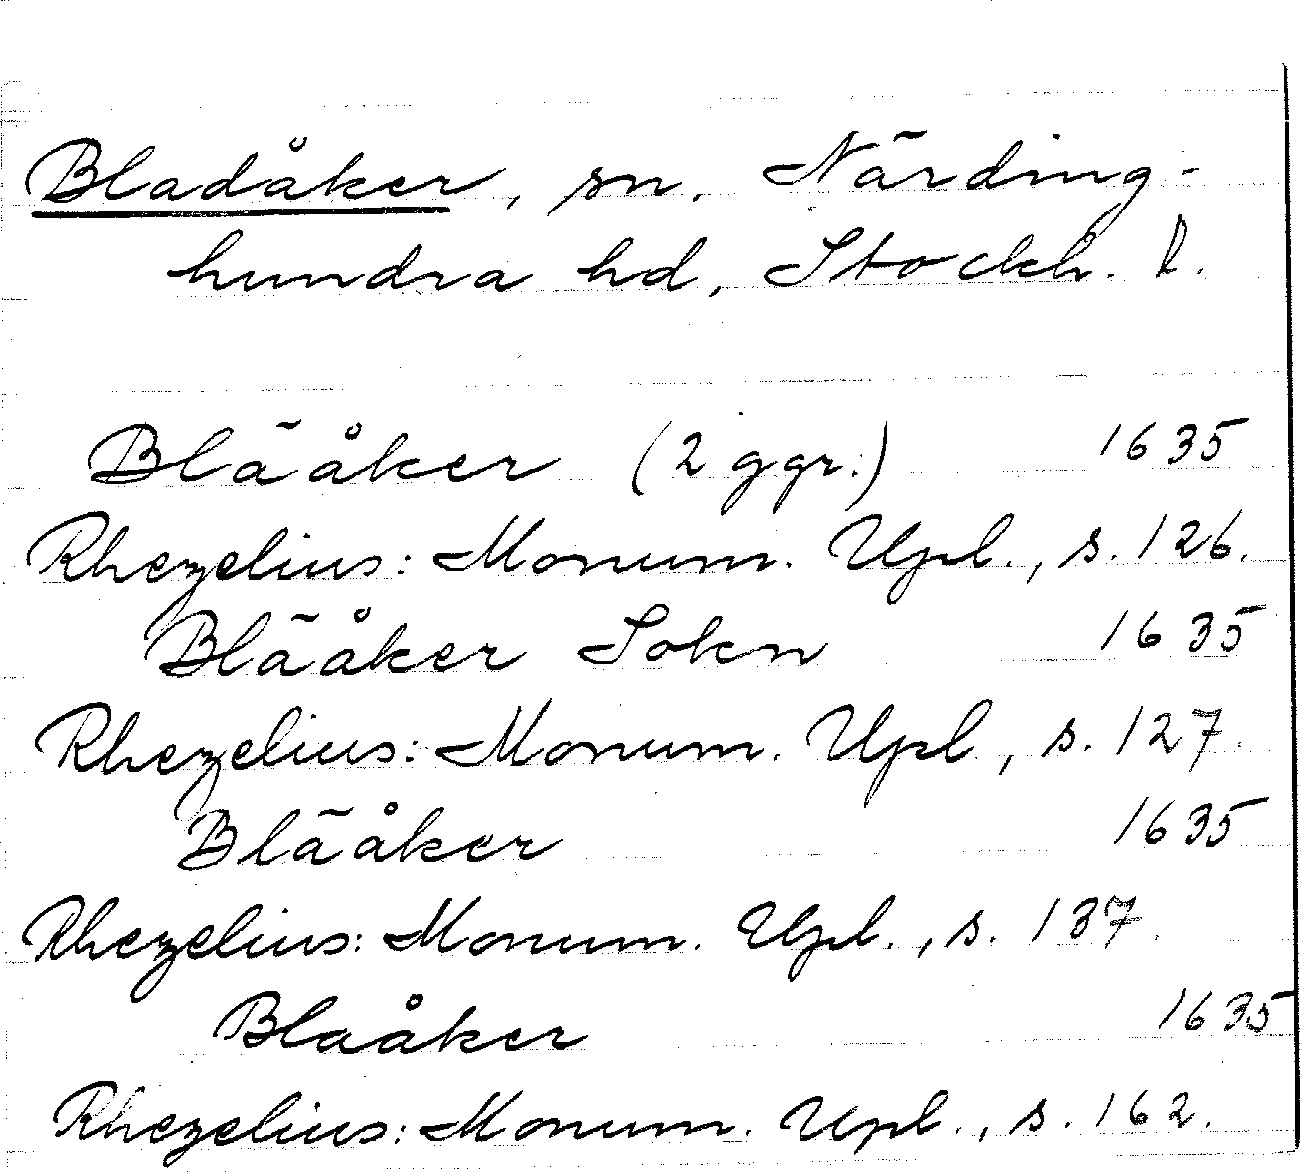 Bladåker, sn, Närding-
hundra hd, Stockh. l.
Blāåker (2 ggr.) 1635
Rhezelius: Monum. Upl., s. 126.
Blāåker Sokn 1635
Rhezelius: Monum. Upl, s. 127.
Blāåker 1635
Rhezelius: Monum. Upl., s. 137.
Blaåker 1635
Rhezelius: Monum. Upl., s. 162.